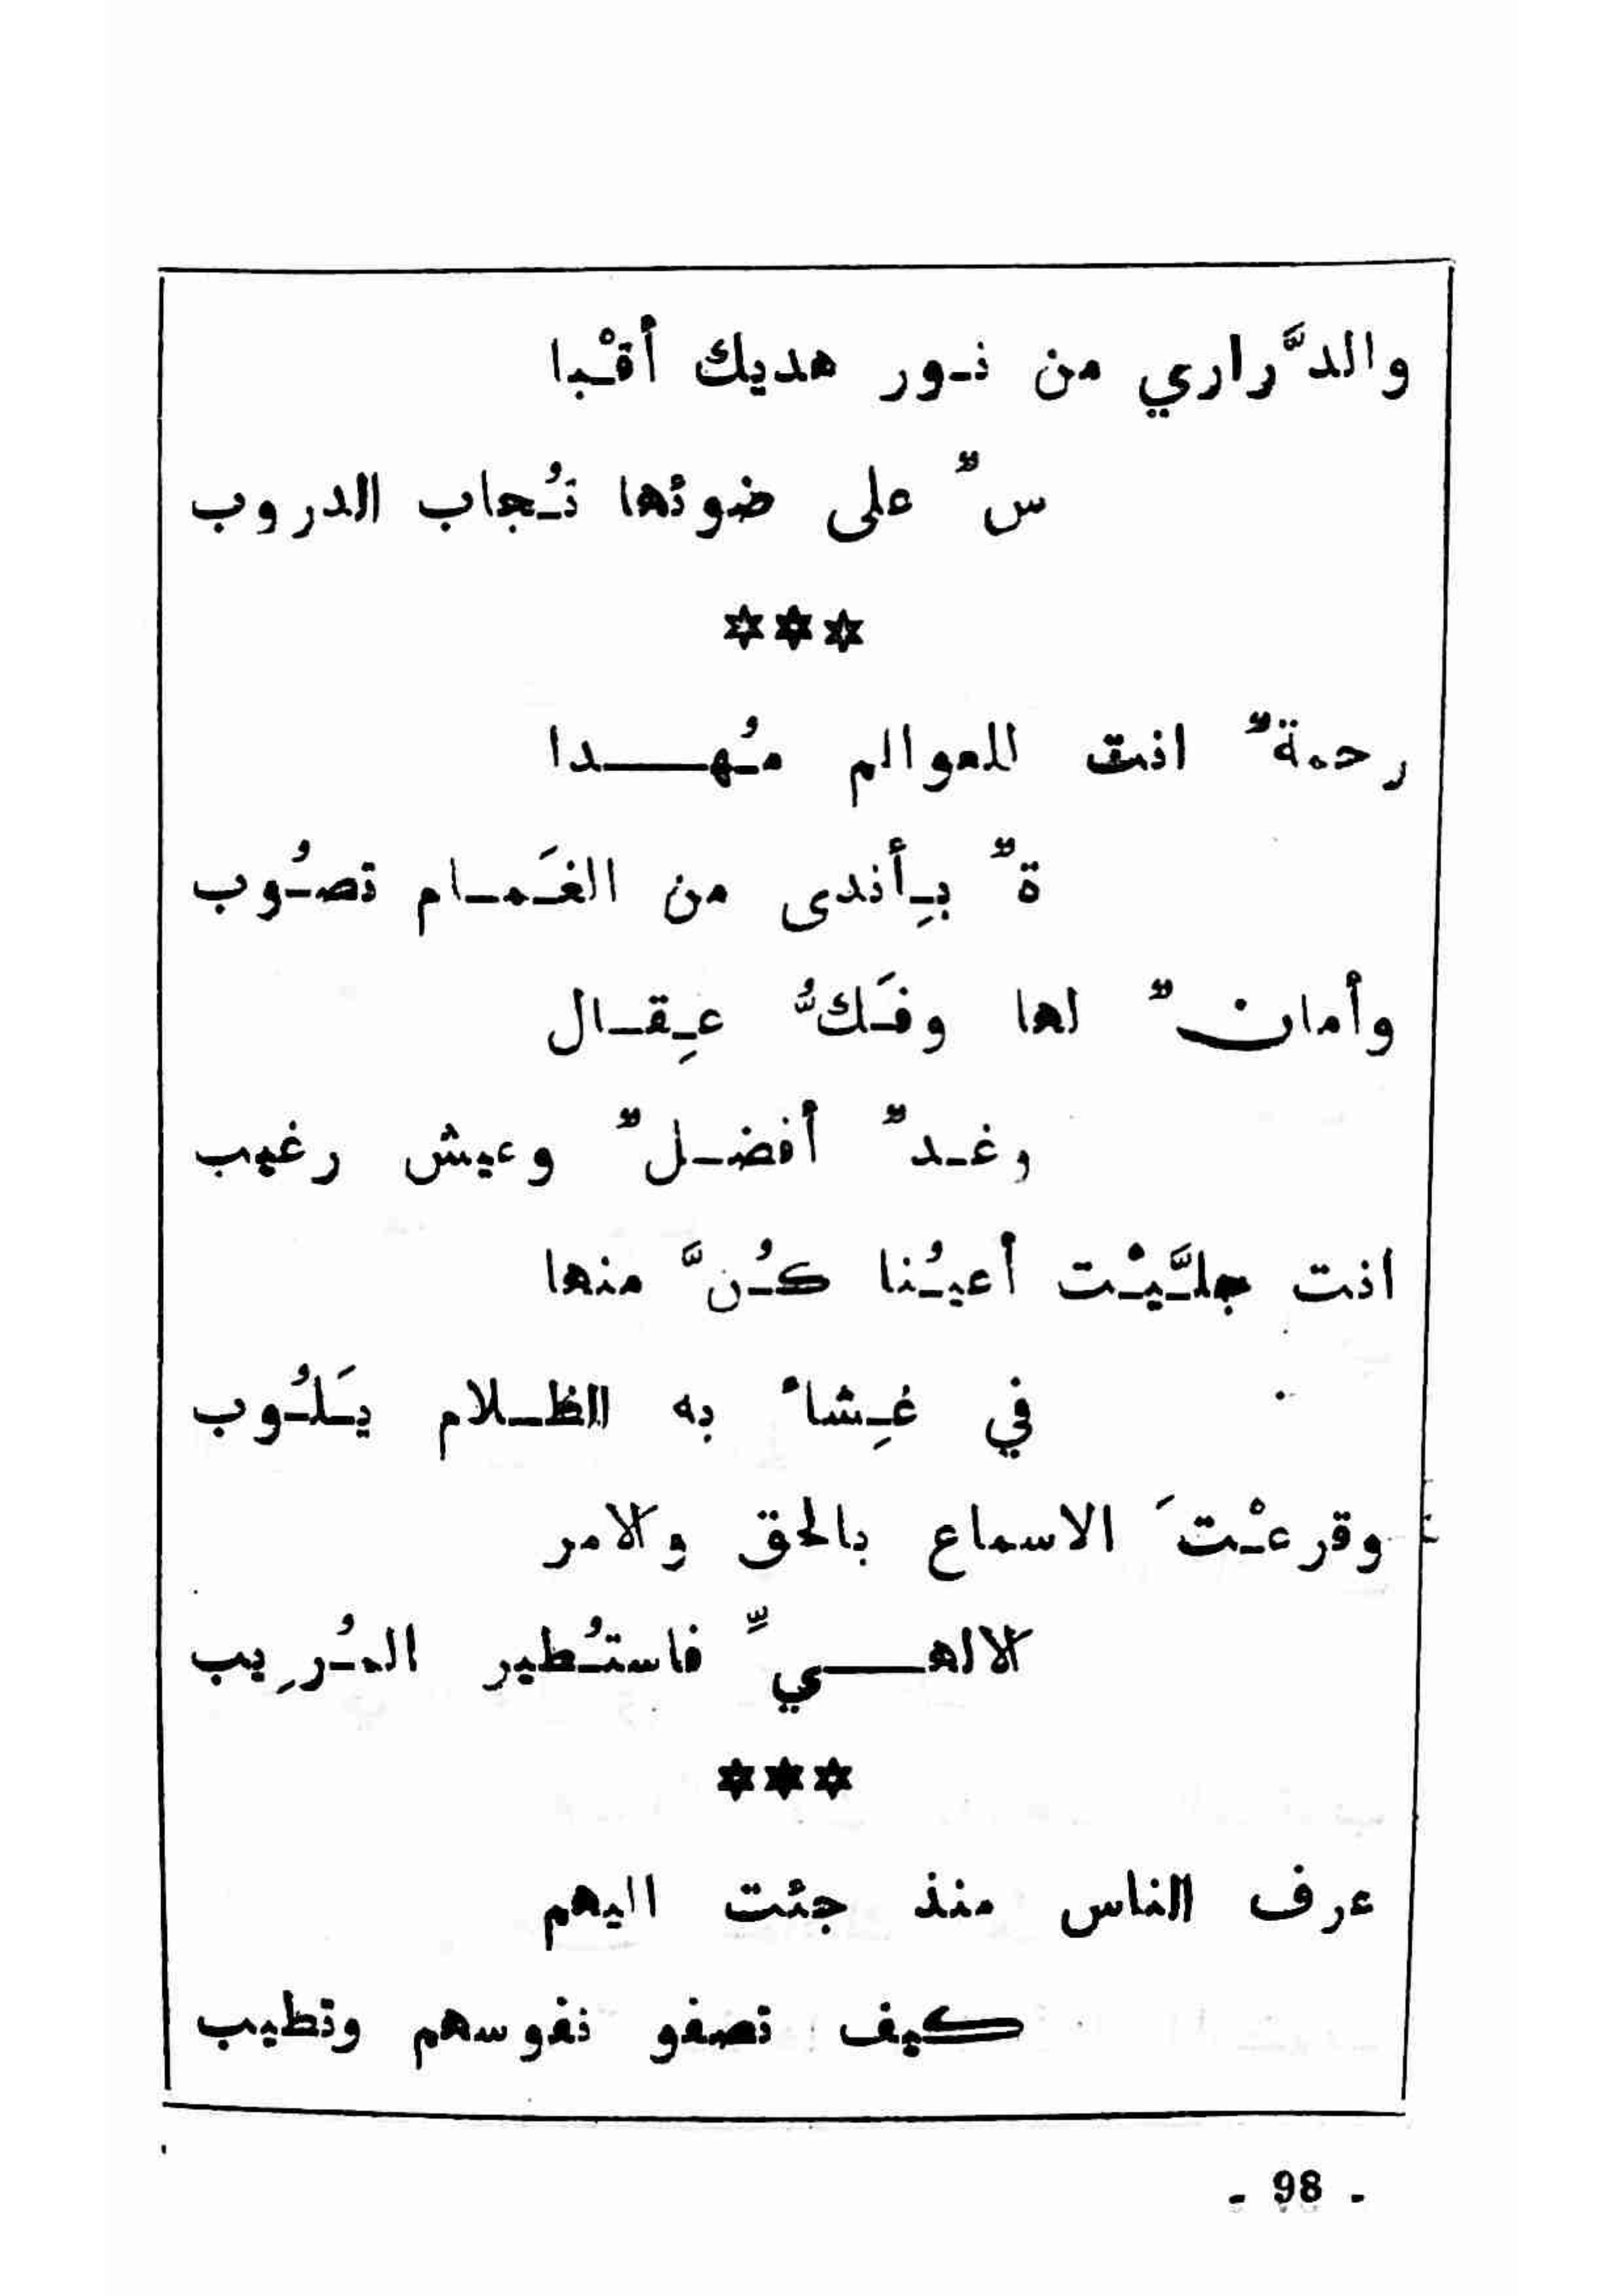 والدَّراري من نـور هديك أقْـبا
سٌ على ضوئها تُـجاب الدروب
***
رحمةٌ انت للعوالم مُـهـــدا
ةٌ بِـأندى من الغَـمـام تصُـوب
وأمانٌ لها وفَـكُّ عِـقـال
وغـدٌ أفضـلٌ وعيش رغيب
انت جلَّـيْـت أعيُـنا كُـنَّ منها
في غِـشاءٍ به الظـلام يَـلُـوب
وقرعْـتَ الاسماع بالحق والامر
الالهـــيِّ فاستُـطير المُـرِيب
***
عرف الناس منذ جئت اليهم
كيف تصفو نفوسهم وتطيب
- 98 -